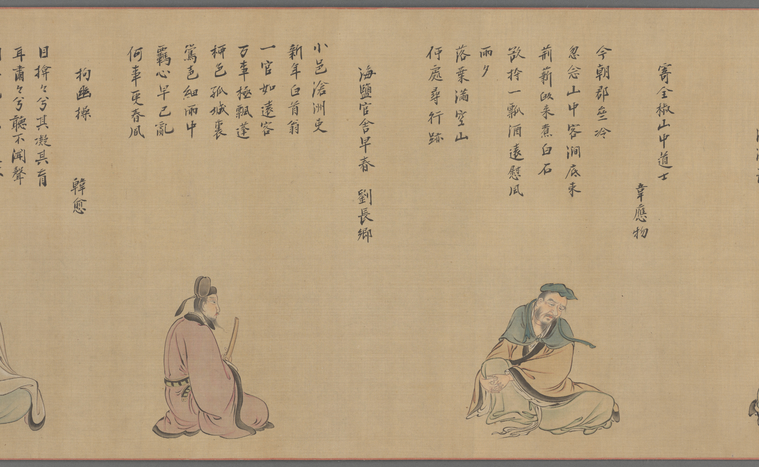 寄全椒山中道士
韋應物
今朝郡齋冷
忽念山中客澗底束
荊薪歸来煮白石
欲持一瓢酒遠慰風
雨夕
落葉滿空山
何處尋行跡
海鹽官舍早春 劉長卿
小邑滄洲吏
新年白首翁
一官如遠客
万事極飄蓬
柳色孤城裏
鶯声細雨中
羈心早已亂
何事更春風
拘幽操 韓愈
目揜々兮其凝其盲
耳肅々兮聽不聞聲